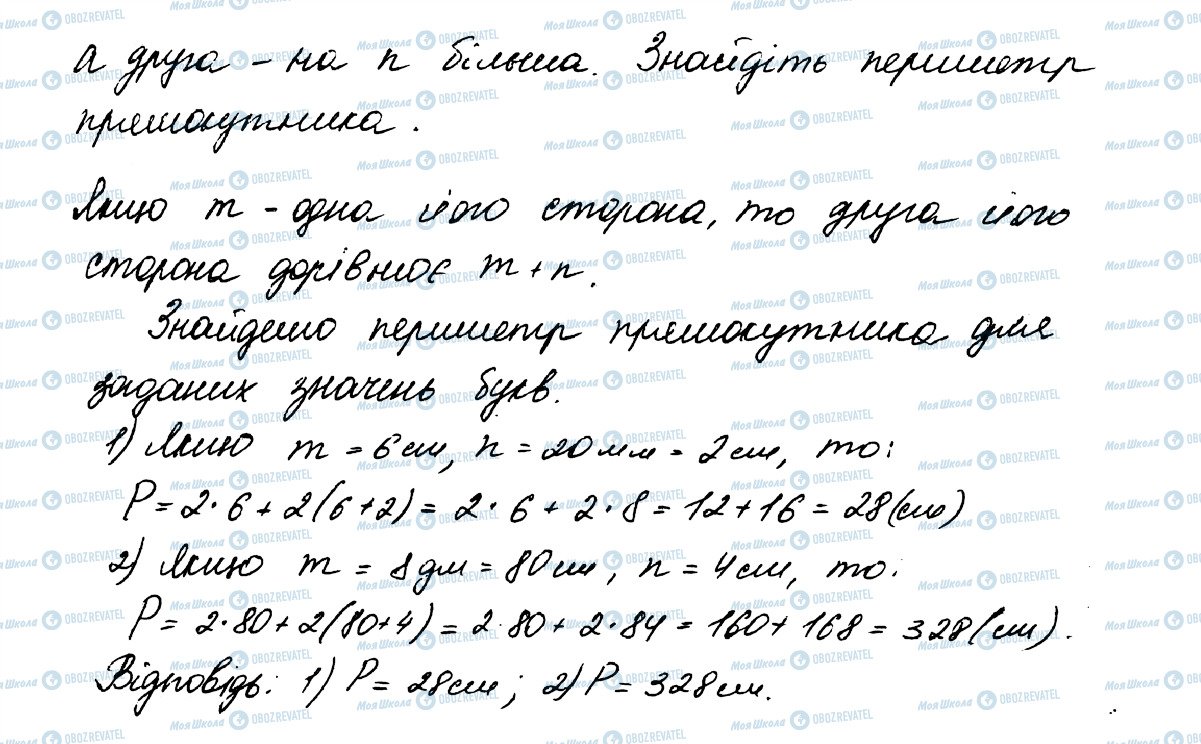 а друга - на n більша. Знайдіть периметр
прямокутника.
Якщо m - одна його сторона, то друга його
сторона дорівнює m + n.
Знайдемо периметр прямокутника для
заданих значень букв.
1) Якщо m = 6 см, n = 20 мм = 2 см, то:
P = 2 · 6 + 2(6+2) = 2 · 6 + 2 · 8 = 12 + 16 = 28 (см)
2) Якщо m = 8 дм = 80 см, n = 4 см, то:
P = 2 · 80 + 2(80+4) = 2 · 80 + 2 · 84 = 160 + 168 = 328 (см).
Відповідь: 1) P = 28 см; 2) P = 328 см.